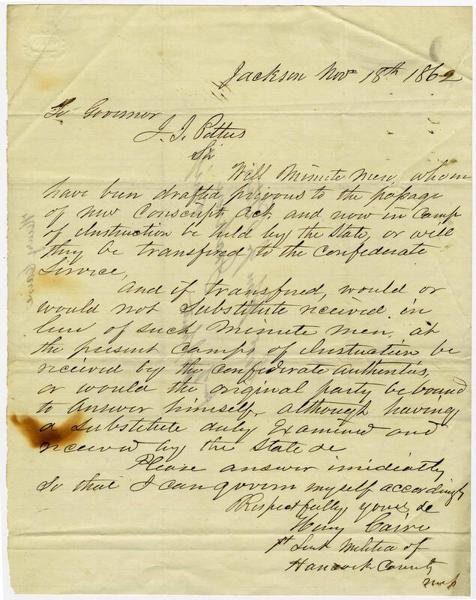 Jackson Nov 18th 1862
To Governor
J. J. Pettus
Sir
Will Minute men, whom
have been drafted privous to the passage
of new Conscript Act, and now in Camp
of instruction be held by the State, or will
they be transfred to the Confederate
Service,
And if transfred, would or
would not Substitute received in
lieu of such Minute men, at
the present Camps of instruction be
received by the Confederate Authoritis,
or would the original party be bound
to Answer himself, although having
a substitute duly Examined and
received by the State &c
Please answer imidiatly
So that I can govern myself accordingly
Respectfully yours &c
Henry Caire
1st Lieut Militia of
Hancock County